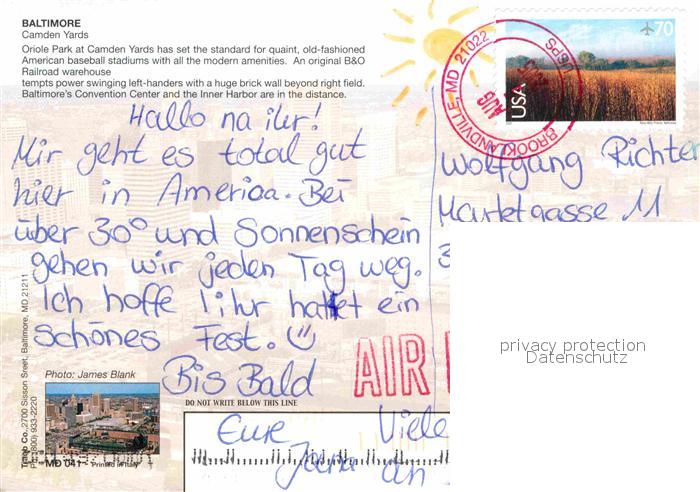 BALTIMORE
Camden Yards
Oriole Park at Camden Yards has set the standard for quaint, old-fashioned
American baseball stadiums with all the modern amenities. An original B&O
Railroad warehouse
tempts power swinging left-handers with a huge brick wall beyond right field.
Baltimore's Convention Center and the Inner Harbor are in the distance.
Hallo na ihr!
Mir geht es total gut
hier in America. Bei
über 30° und Sonnenschein
gehen wir jeden Tag weg.
Ich hoffe ihr hattet ein
schönes Fest.
Bis Bald
Eure
Viele
an
70
USA
BROOKLANDVILLE, MD 21022
USPS
AUG
Wolfgang Richter
Marktgasse 11
3
privacy protection
Datenschutz
AIR
DO NOT WRITE BELOW THIS LINE
Photo: James Blank
MD 041 Printed in Italy
Co., 2700 Sisson Street, Baltimore, MD 21211
(800) 933-2220